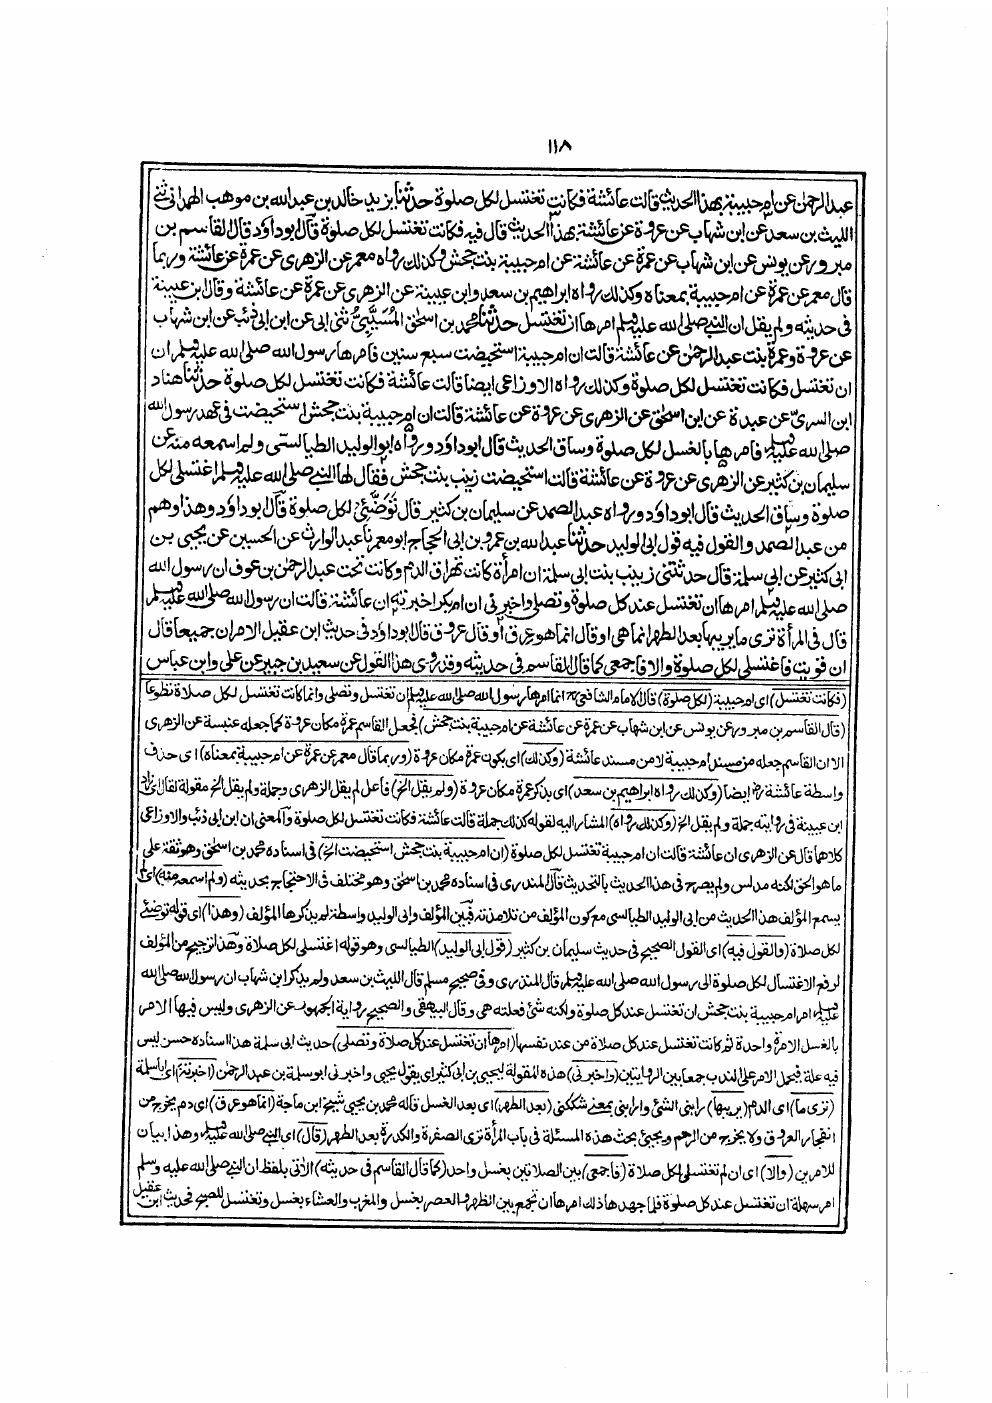 ١١٨
عبد الرحمٰن عن ام حبيبة بهذا الحديث قالت عائشة فكانت تغتسل لكل صلوة حدثنا يزيد خالد بن عبد الله بن موهب الهمدانى ثنى
الليث بن سعد عن ابن شهاب عن عروة عن عائشة بهذا الحديث قال فيه فكانت تغتسل لكل صلوة قال ابوداؤد قال القاسم بن
مبرور عن يونس عن ابن شهاب عن عمرة عن عائشة عن ام حبيبة بنت جحش وكذلك رواه معمر عن الزهرى عن عمرة عن عائشة وربما
قال معمر عن عمرة عن ام حبيبة بمعناه وكذلك رواه ابراهيم بن سعد وابن عيينة عن الزهرى عن عمرة عن عائشة وقال ابن عيينة
فى حديثه ولم يقل ان النبى صلى الله عليه وسلم امرها ان تغتسل حدثنا محمد بن اسحٰق المُسَيَّبِىُّ ثنى ابى عن ابن ابى ذئب عن ابن شهاب
عن عروة وعمرة بنت عبد الرحمٰن عن عائشة قالت ان ام حبيبة استحيضت سبع سنين فامرها رسول الله صلى الله عليه وسلم ان
ان تغتسل فكانت تغتسل لكل صلوة وكذلك رواه الاوزاعى ايضا قالت عائشة فكانت تغتسل لكل صلوة حدثنا هناد
ابن السرىّ عن عبدة عن ابن اسحٰق عن الزهرى عن عروة عن عائشة قالت ان ام حبيبة بنت جحش استحيضت فى عهد رسول الله
صلى الله عليه وسلم فامرها بالغسل لكل صلوة وساق الحديث قال ابوداؤد ورواه ابوالوليد الطيالسى ولم اسمعه منه عن
سليمان بن كثير عن الزهرى عن عروة عن عائشة قالت استحيضت زينب بنت جحش فقال لها النبى صلى الله عليه وسلم اغتسلى لكل
صلوة وساق الحديث قال ابوداؤد ورواه عبد الصمد عن سليمان بن كثير قال تَوَضَّئِىْ لكل صلوة قال ابوداؤد وهذا وهم
من عبد الصمد والقول فيه قول ابى الوليد حدثنا عبد الله بن عمرو بن ابى الحجاج ابو معمر نا عبد الوارث عن الحسين عن يحيى بن
ابى كثير عن ابى سلمة قال حدثتنى زينب بنت ابى سلمة ان امرأة كانت تهراق الدم وكانت تحت عبد الرحمٰن بن عوف ان رسول الله
صلى الله عليه وسلم امرها ان تغتسل عند كل صلوة وتصلى واخبرنى ان ام بكر اخبرته ان عائشة قالت ان رسول الله صلى الله عليه وسلم
قال فى المرأة ترى ما يريبها بعد الطهر انما هى او قال انما هو عرق او قال عروق قال ابوداؤد فى حديث ابن عقيل الامران جميعا قال
ان قويت فاغتسلى لكل صلوة والا فاجمعى كما قال القاسم فى حديثه وقد روى هذا القول عن سعيد بن جبير عن على وابن عباس
(فكانت تغتسل) اى ام حبيبة (لكل صلوة) قال الامام الشافعى انما امرها رسول الله صلى الله عليه وسلم ان تغتسل وتصلى وانما كانت تغتسل لكل صلاة تطوعا
(قال القاسم بن مبرور عن يونس عن ابن شهاب عن عمرة عن عائشة عن ام حبيبة بنت جحش) فجعل القاسم عمرة مكان عروة كما جعله عنبسة عن الزهرى
الا ان القاسم جعله من مسند ام حبيبة لا من مسند عائشة (وكذلك) اى بكون عمرة مكان عروة (وربما قال معمر عن عمرة عن ام حبيبة بمعناه) اى حذف
واسطة عائشة ايضا (وكذلك رواه ابراهيم بن سعد) اى بذكر عمرة مكان عروة (ولم يقل الخ) فاعل لم يقل الزهرى وجملة ولم يقل الخ مقولة لقال اى زاد
ابن عيينة فى روايته جملة ولم يقل الخ (وكذلك رواه) المشار اليه لقوله كذلك جملة قالت عائشة فكانت تغتسل لكل صلوة والمعنى ان ابن ابى ذئب والاوزاعى
كلاهما قال عن الزهرى ان عائشة قالت ان ام حبيبة تغتسل لكل صلوة (ان ام حبيبة بنت جحش استحيضت الخ) فى اسناده محمد بن اسحٰق وهو ثقة على
ما هو الحق لكنه مدلس ولم يصرح فى هذا الحديث بالتحديث قال المنذرى فى اسناده محمد بن اسحٰق وهو مختلف فى الاحتجاج بحديثه (ولم اسمعه منه) اى لم
يسمع المؤلف هذا الحديث من ابى الوليد الطيالسى مع كون المؤلف من تلامذته فبين المؤلف وابى الوليد واسطة لم يذكرها المؤلف (وهذا) اى قوله توضئى
لكل صلاة (والقول فيه) اى القول الصحيح فى حديث سليمان بن كثير (قول ابى الوليد) الطيالسى وهو قوله اغتسلى لكل صلاة وهذا ترجيح من المؤلف
لرفع الاغتسال لكل صلوة الى رسول الله صلى الله عليه وسلم قال المنذرى وفى صحيح مسلم قال الليث بن سعد ولم يذكر ابن شهاب ان رسول الله صلى الله
عليه وسلم امر ام حبيبة بنت جحش ان تغتسل عند كل صلوة ولكنه شئ فعلته هى وقال البيهقى والصحيح رواية الجمهور عن الزهرى وليس فيها الامر
بالغسل الا مرة واحدة ثم كانت تغتسل عند كل صلاة من عند نفسها (امرها ان تغتسل عند كل صلاة وتصلى) حديث ابى سلمة هذا اسناده حسن ليس
فيه علة فيحمل الامر على الندب جمعا بين الروايتين (واخبرنى) هذه المقولة ليحيى بن ابى كثير اى يقول يحيى واخبرنى ابو سلمة بن عبد الرحمٰن (اخبرته) اى اباسلمة
(ترى ما) اى الدم (يريبها) رابنى الشئ وارابنى بمعنى شككنى (بعد الطهر) اى بعد الغسل قاله محمد بن يحيى شيخ ابن ماجة (انما هو عرق) اى دم يخرج من
انفجار العروق ولا يخرج من الرحم ويجئ بحث هذه المسئلة فى باب المرأة ترى الصفرة والكدرة بعد الطهر (قال) اى النبى صلى الله عليه وسلم وهذا بيان
للامرين (والا) اى ان لم تغتسلى لكل صلاة (فاجمعى) بين الصلاتين بغسل واحد (كما قال القاسم فى حديثه) الآتى بلفظ ان النبى صلى الله عليه وسلم
امر سهلة ان تغتسل عند كل صلوة فلما جهدها ذلك امرها ان تجمع بين الظهر والعصر بغسل والمغرب والعشاء بغسل وتغتسل للصبح فحديث ابن عقيل